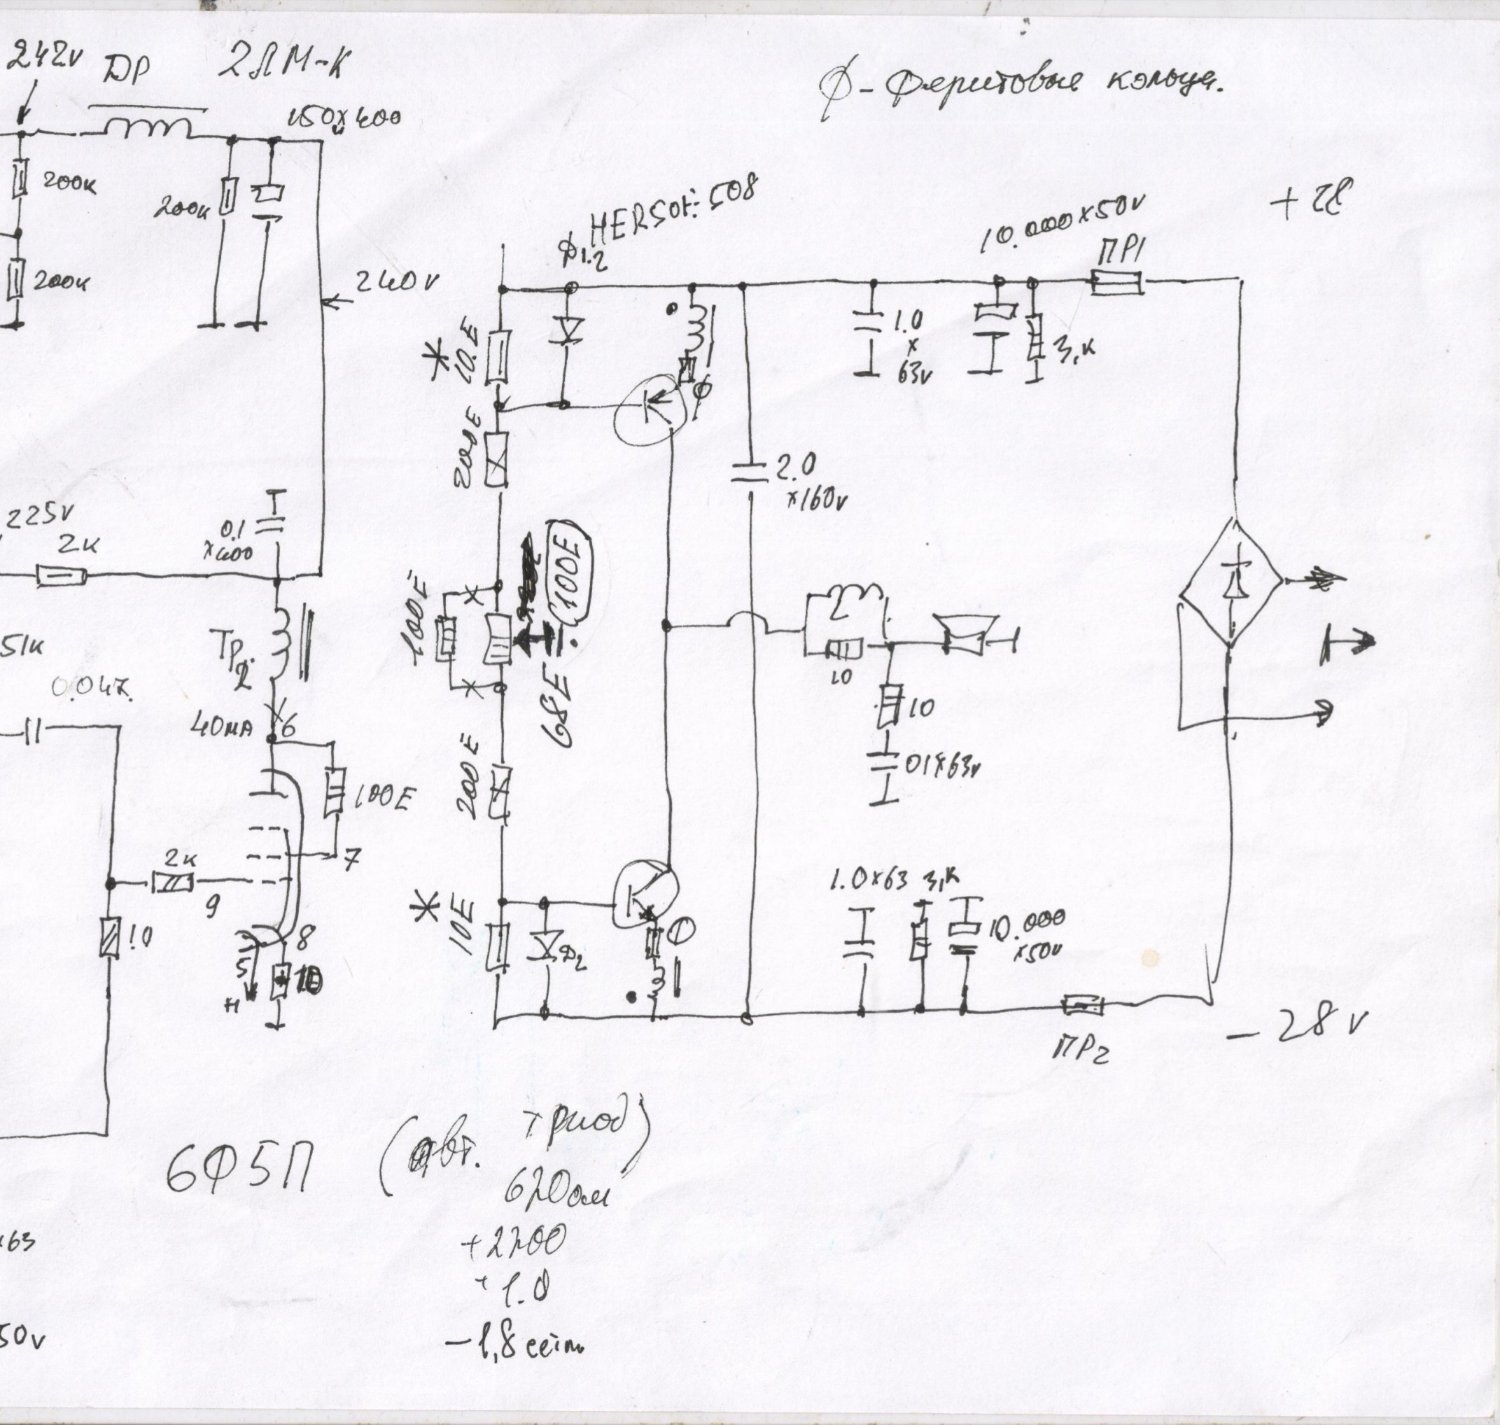 242v ДР 2ЛМ-К
ф - феритовые кольца.
150x400
200к
200к
200к
240v
HER501÷508
Ф1.2
10.000x50v
ПР1
+28
* 10.E
1.0
x
63v
3,к
ф
200E
2.0
x160v
225v
2к
0.1
x400
100E
100E
68E
51к
Тр2
0.047
40мА 6
10
10
01x63v
100E
200E
7
2к
9
10
8
5
н
10
* 10E
Д2
ф
1.0x63 3,к
10.000
x50v
ПР2
- 28v
6Ф5П (авт. триод)
620ом
+2200
+1.0
-1,8
x63
50v